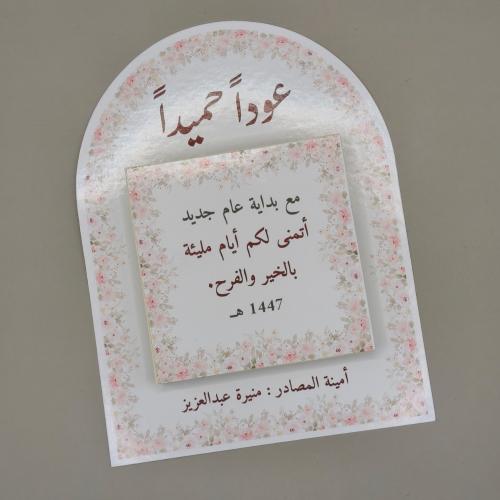 عوداً حميداً
مع بداية عام جديد
أتمنى لكم أيام مليئة
بالخير والفرح.
1447 هـ
أمينة المصادر : منيرة عبدالعزيز